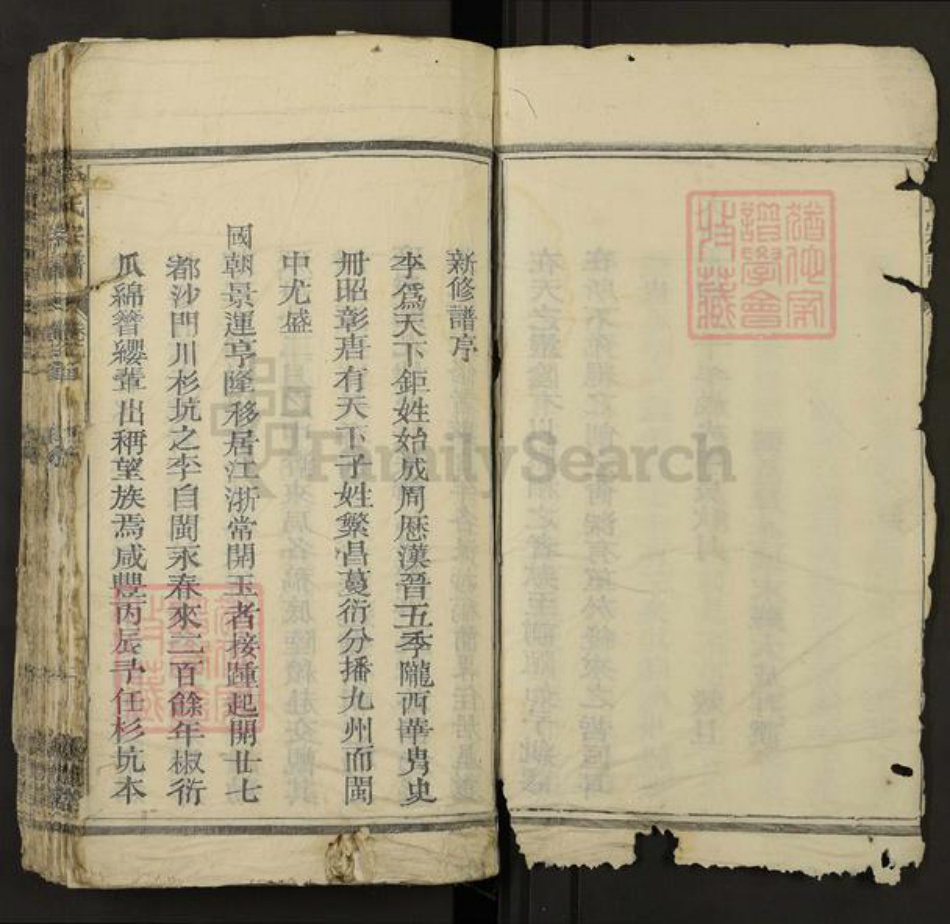 新修譜序
李爲天下鉅姓始成周歷漢晉五季隴西華胄史
冊昭彰唐有天下子姓繁昌蔓衍分播九州而閩
中尤盛
國朝景運亨隆移居江浙常開玉者接踵起開廿七
都沙門川杉坑之李自閩永春來二百餘年椒衍
瓜綿簪纓輩出稱望族焉咸豐丙辰予任杉坑本
FamilySearch